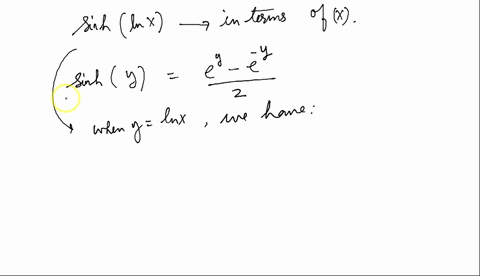 sinh (lnx) → in terms of (x).
sinh (y) = \frac{e^y - e^{-y}}{2}
when y = lnx , we have: